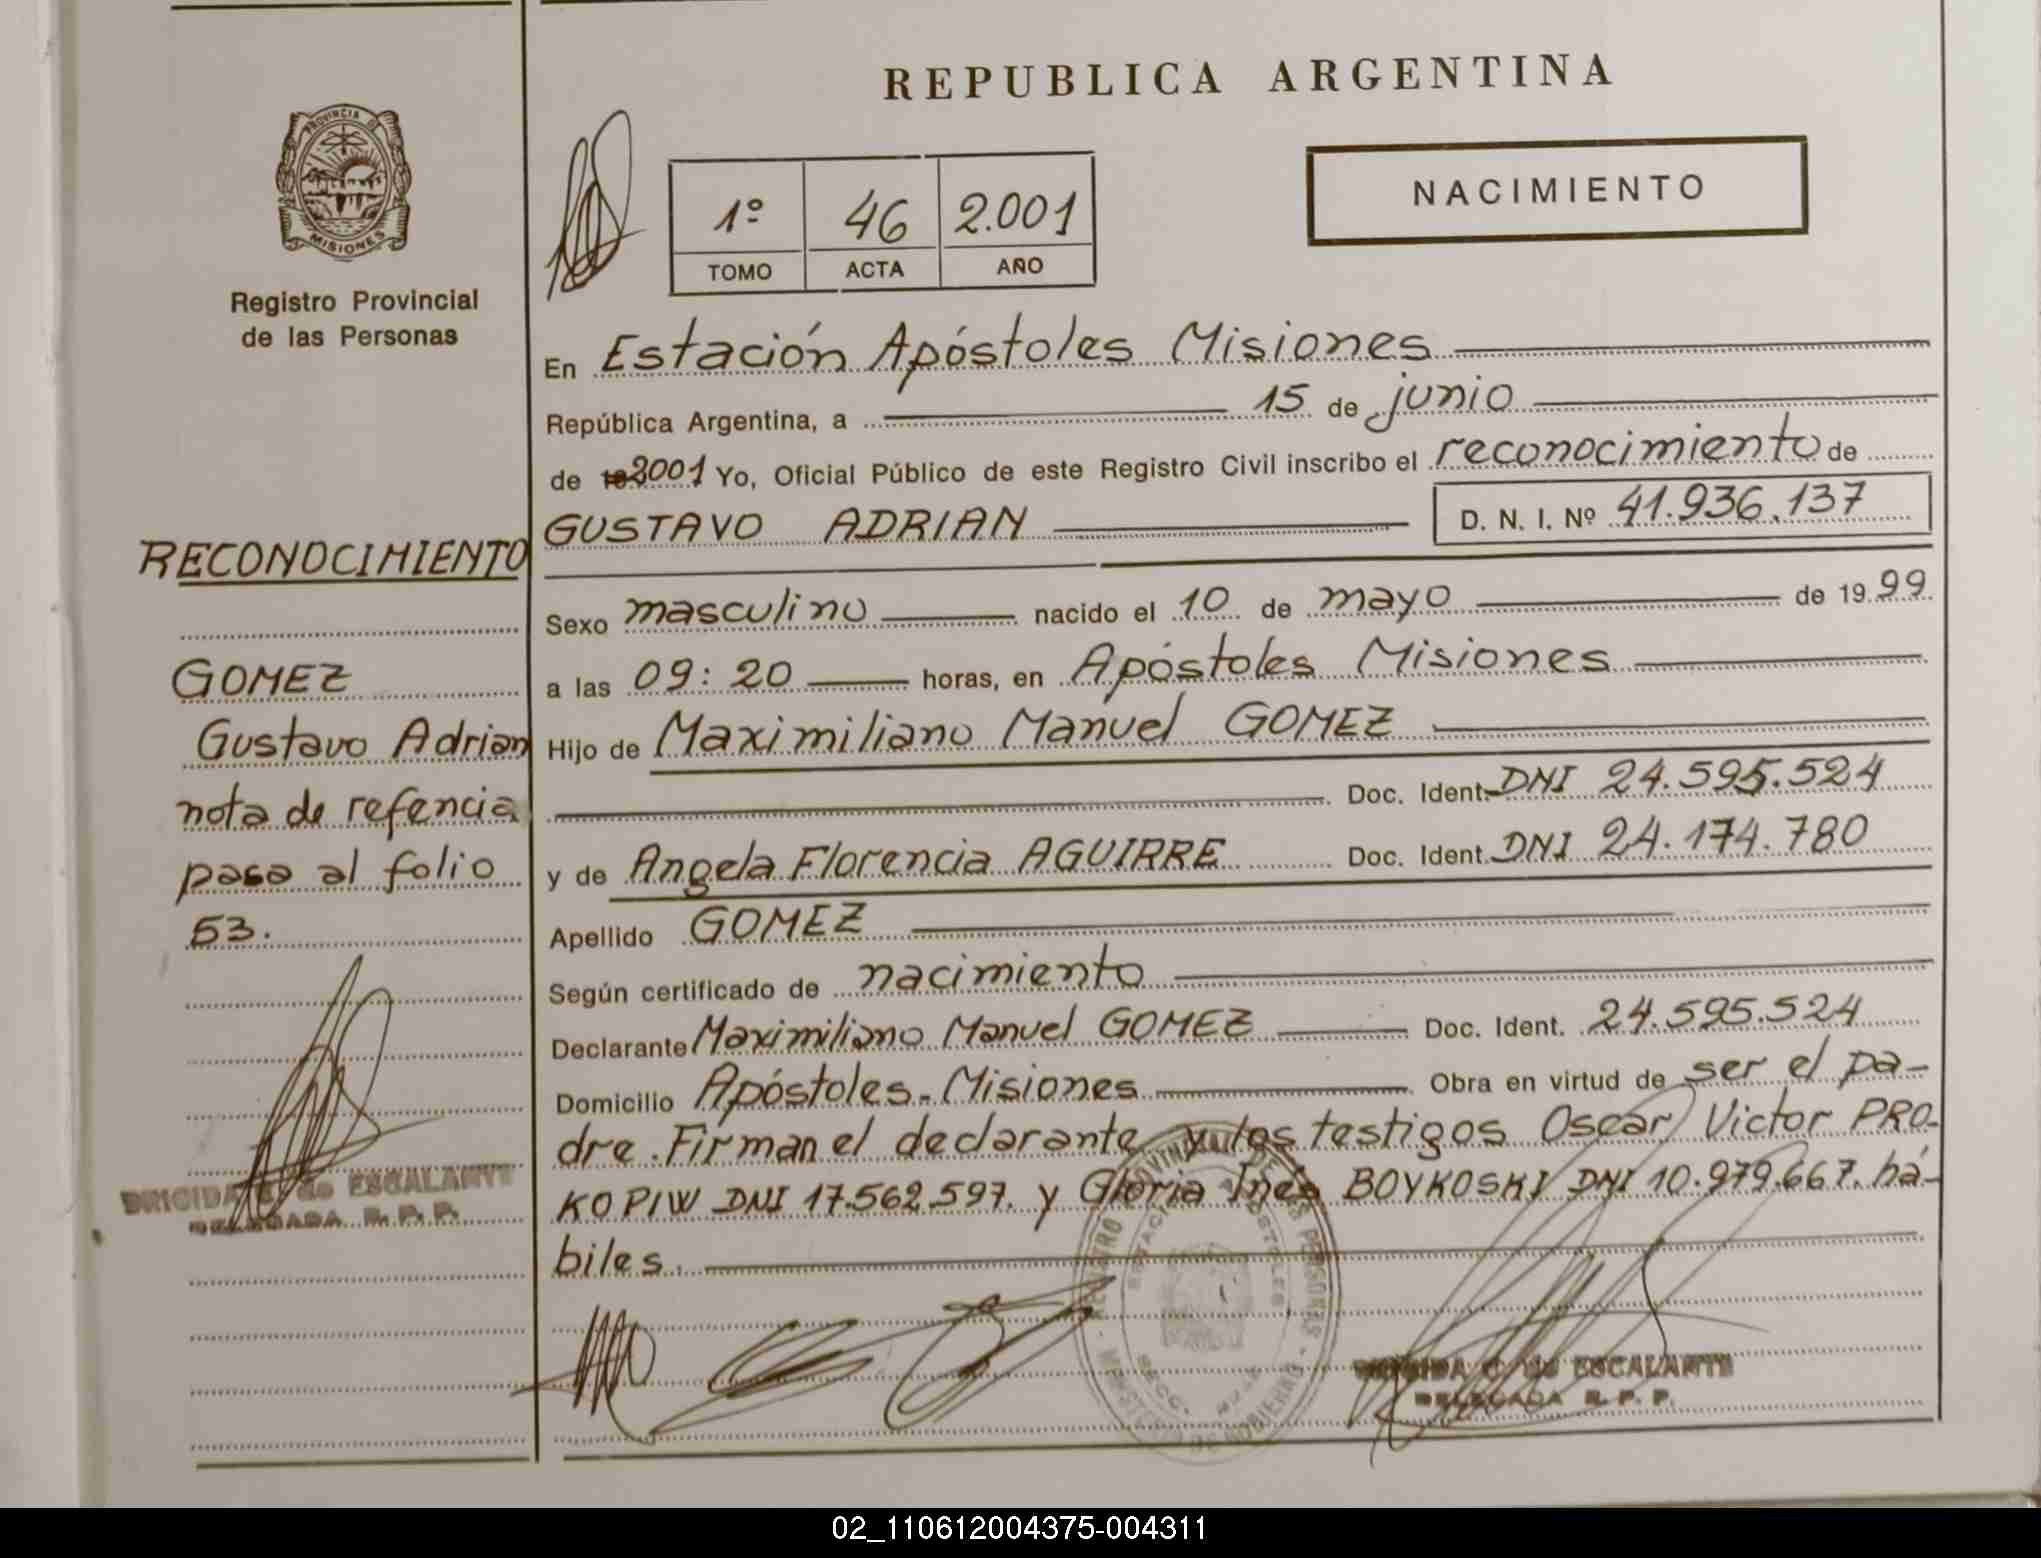 REPUBLICA ARGENTINA
PROVINCIA DE
MISIONES
Registro Provincial
de las Personas
1º 46 2.001
TOMO ACTA AÑO
NACIMIENTO
En Estación Apóstoles Misiones
República Argentina, a 15 de junio
de 19 2001 Yo, Oficial Público de este Registro Civil inscribo el reconocimiento de
GUSTAVO ADRIAN D. N. I. Nº 41.936.137
RECONOCIMIENTO
Sexo masculino nacido el 10 de mayo de 1999
GOMEZ
a las 09:20 horas, en Apóstoles Misiones
Gustavo Adrian
Hijo de Maximiliano Manuel GOMEZ
nota de refencia
Doc. Ident. DNI 24.595.524
pasa al folio
y de Angela Florencia AGUIRRE Doc. Ident. DNI 24.174.780
53.
Apellido GOMEZ
Según certificado de nacimiento
Declarante Maximiliano Manuel GOMEZ Doc. Ident. 24.595.524
Domicilio Apóstoles - Misiones Obra en virtud de ser el pa-
dre. Firman el declarante y los testigos Oscar Victor PRO-
KOPIW DNI 17.562.597. y Gloria Inés BOYKOSKI DNI 10.979.667. há-
biles.
BRIGIDA C. de ESCALANTE
DELEGADA R. P. P.
REGISTRO PROVINCIAL DE LAS PERSONAS
ESTACION APOSTOLES
MINISTERIO DE GOBIERNO
BRIGIDA C. de ESCALANTE
DELEGADA R. P. P.
02_110612004375-004311